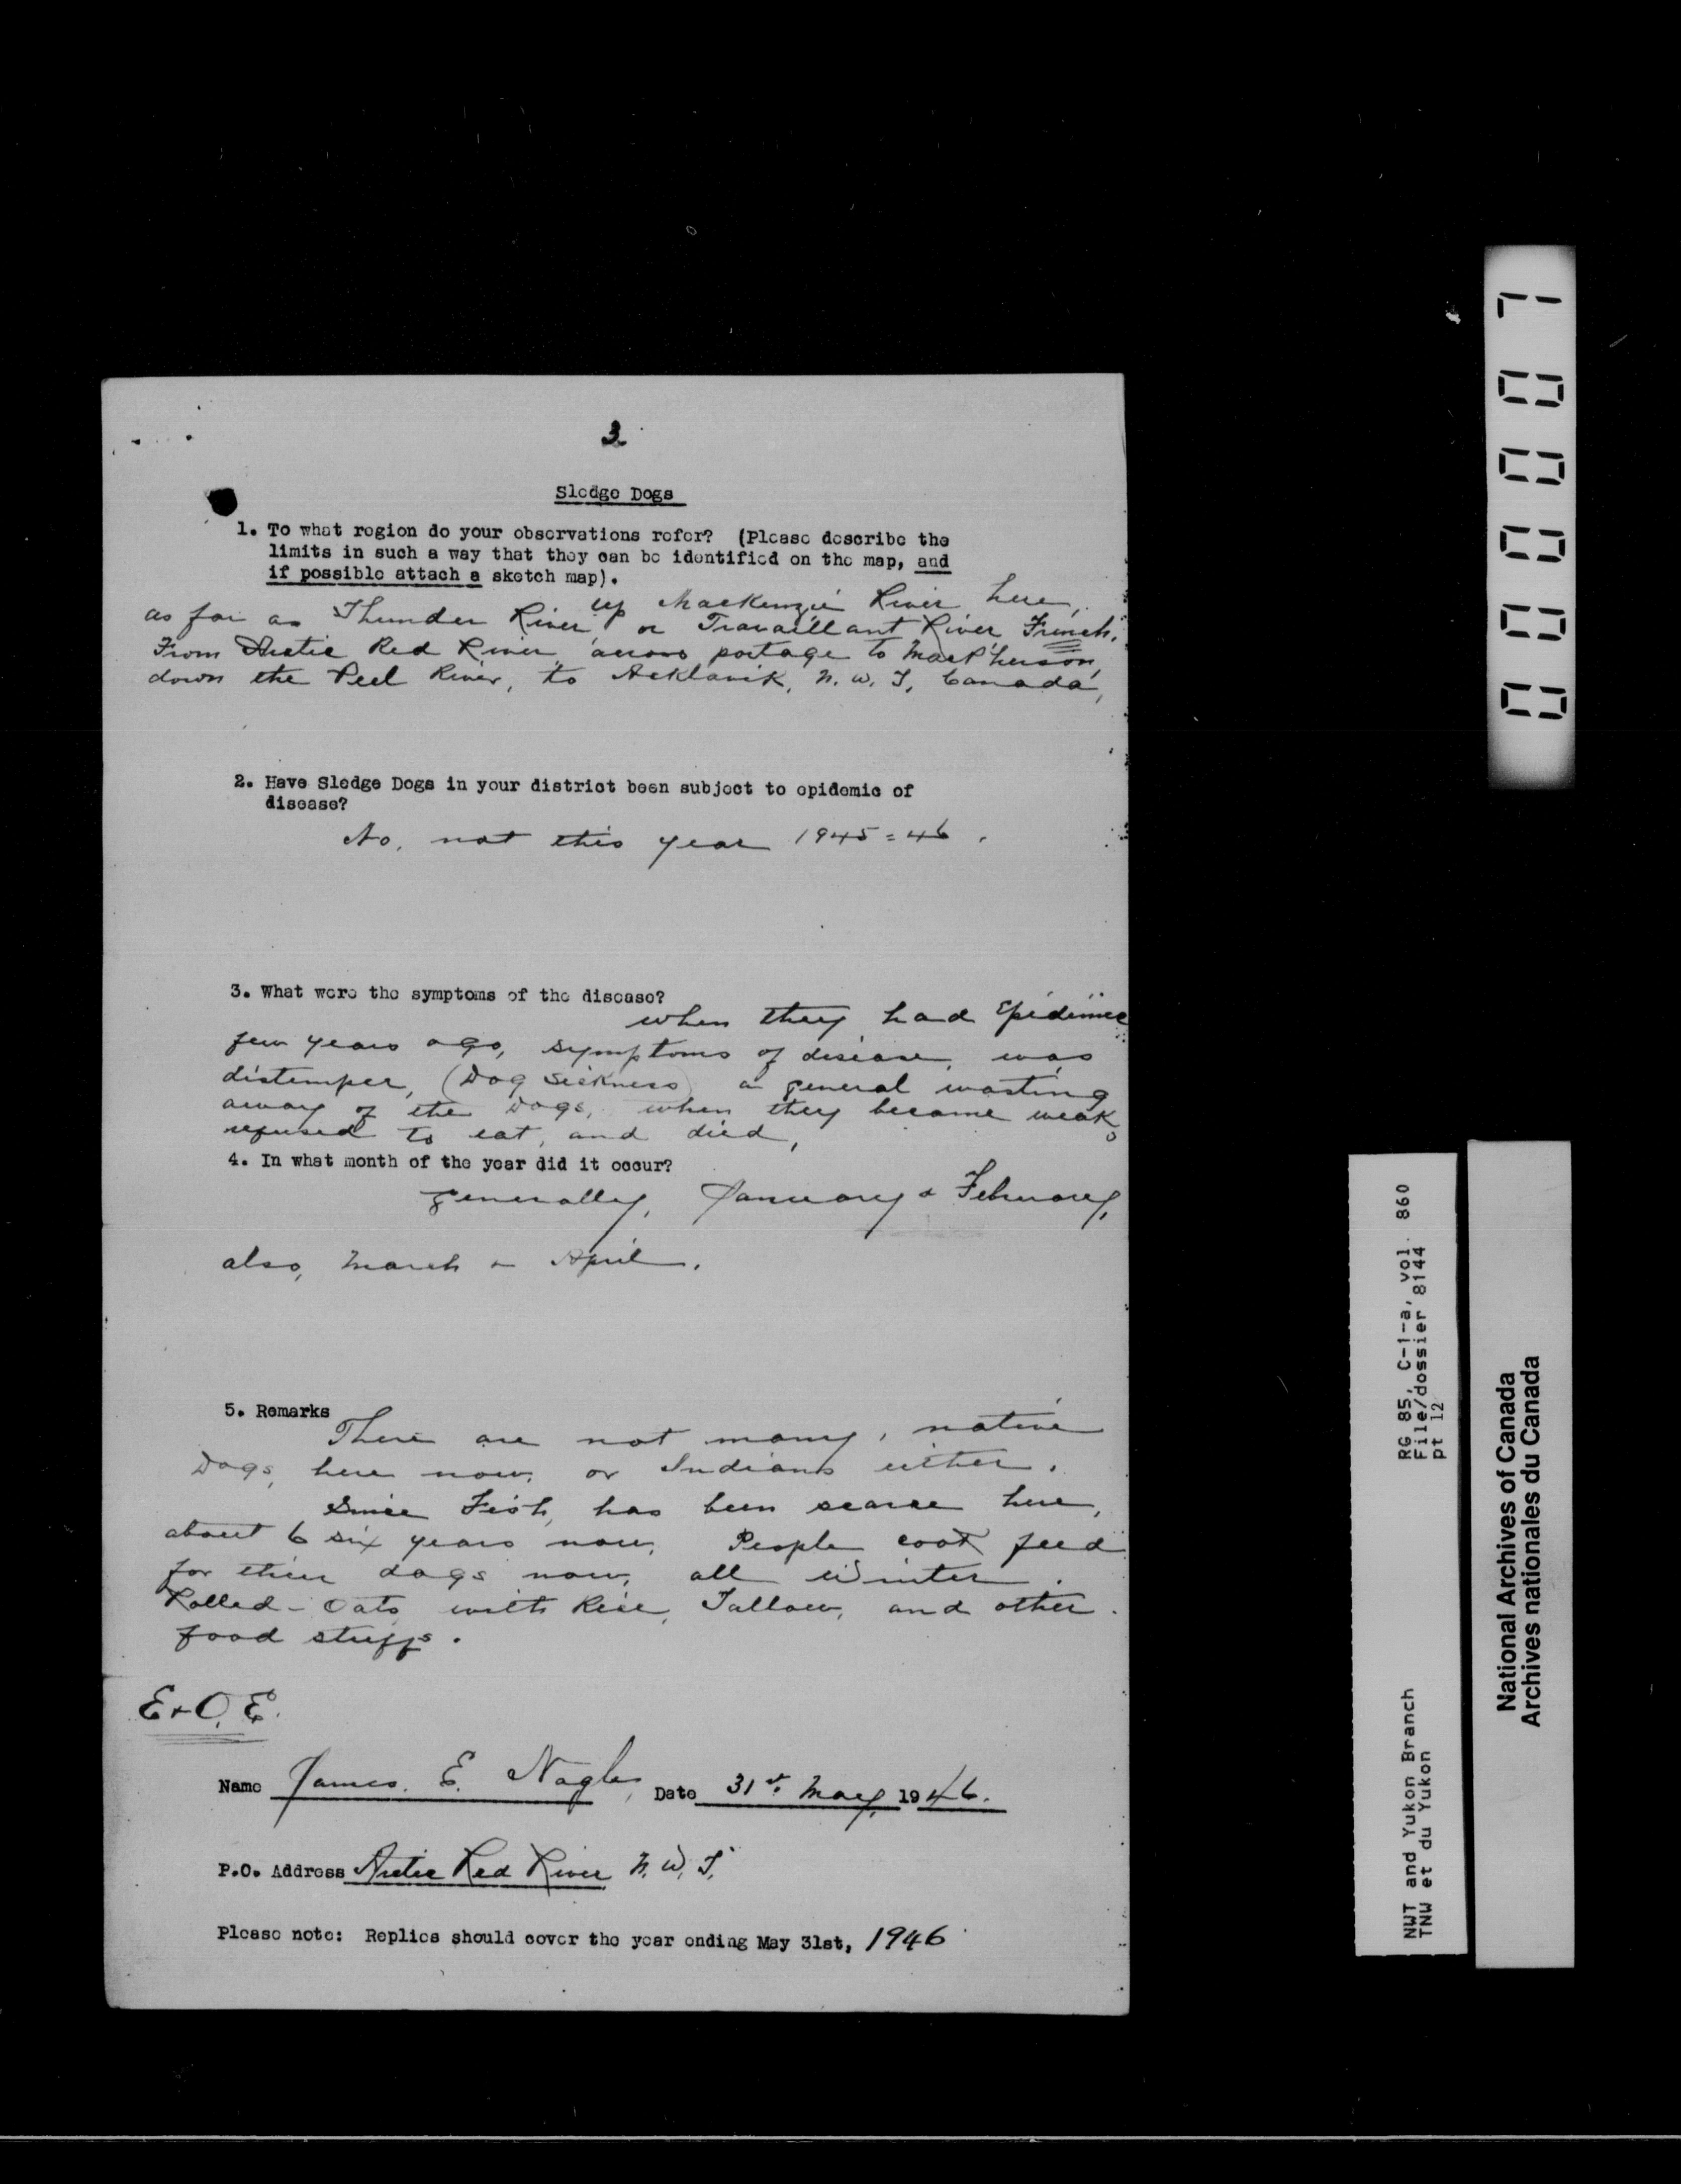 3.
Sledge Dogs
1. To what region do your observations refer? (Please describe the
limits in such a way that they can be identified on the map, and
if possible attach a sketch map).
up MacKenzie River here,
as far as Thunder River, or Travaillant River French.
From Arctic Red River, across portage to MacPherson,
down the Peel River, to Acklavik, N. W. T, Canada,
2. Have Sledge Dogs in your district been subject to epidemic of
disease?
No, not this year 1945=46.
3. What were the symptoms of the disease?
when they had Epidimic
few years ago, symptoms of disease, was
distemper, (Dog Sickness) a general wasting
away of the Dogs, when they became weak,
refused to eat, and died,
4. In what month of the year did it occur?
generally, January & February,
also, March & April.
5. Remarks
There are not many, native
Dogs, here now, or Indians either.
Since Fish, has been scarce here,
about 6 six years now, People cook feed
for their dogs now, all Winter.
Rolled-Oats with Rice, Tallow, and other
food stuffs.
E+O, E.
Name James. E. Nagle, Date 31st May, 1946.
P.O. Address Arctic Red River N. W. T.
Please note: Replies should cover the year ending May 31st, 1946
000007
RG 85, C-1-a, vol. 860
File/dossier 8144
pt 12
NWT and Yukon Branch
TNW et du Yukon
National Archives of Canada
Archives nationales du Canada